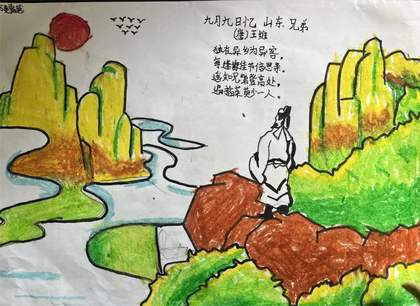 九月九日忆 山东 兄弟
(唐)王维
独在异乡为异客,
每逢佳节倍思亲.
遥知兄弟登高处,
遍插茱萸少一人.